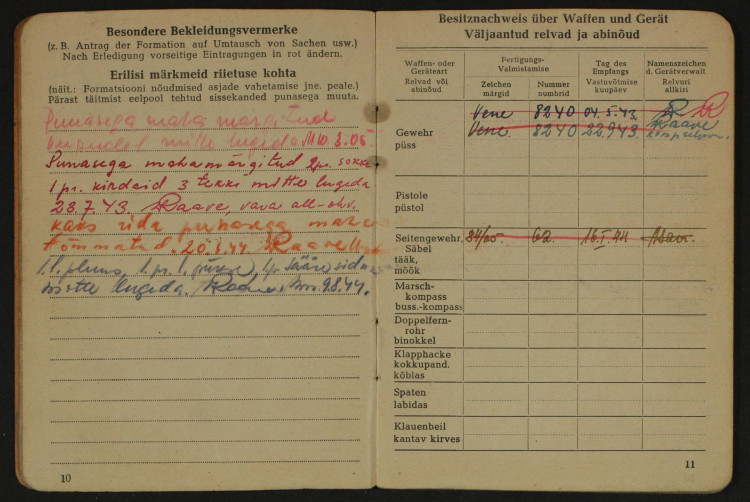 Besondere Bekleidungsvermerke
(z. B. Antrag der Formation auf Umtausch von Sachen usw.)
Nach Erledigung vorseitige Eintragungen in rot ändern.
Erilisi märkmeid riietuse kohta
(näit.: Formatsiooni nõudmised asjade vahetamise jne. peale.)
Pärast täitmist eelpool tehtud sissekanded punasega muuta.
Punasega maha märgitud
mitte lugeda
Punasega maha märgitud 2 pr. sokke
1 pr. kindaid 3 tekki mitte lugeda
28.7.43. Raave, vava all-ohv.
kaks rida punasega maha
tõmmatud. 20.1.44. Raave
mitte lugeda. Raave 9.8.44.
10
Besitznachweis über Waffen und Gerät
Väljaantud relvad ja abinõud
Waffen- oder Geräteart
Relvad või abinõud
Fertigungs-Valmistamise
Zeichen märgid
Nummer numbrid
Tag des Empfangs
Vastuvõtmise kuupäev
Namenszeichen d. Gerätverwalt
Relvuri allkiri
Gewehr
püss
Vene 8240 04.5.43.
Vene 8240 22.9.43. Raave
Pistole
püstol
Seitengewehr, Säbel
tääk, mõõk
84/05. 62. 16.I.44
Marsch-kompass
buss.-kompass
Doppelfern-rohr
binokkel
Klapphacke
kokkupand. kõblas
Spaten
labidas
Klauenbeil
kantav kirves
11